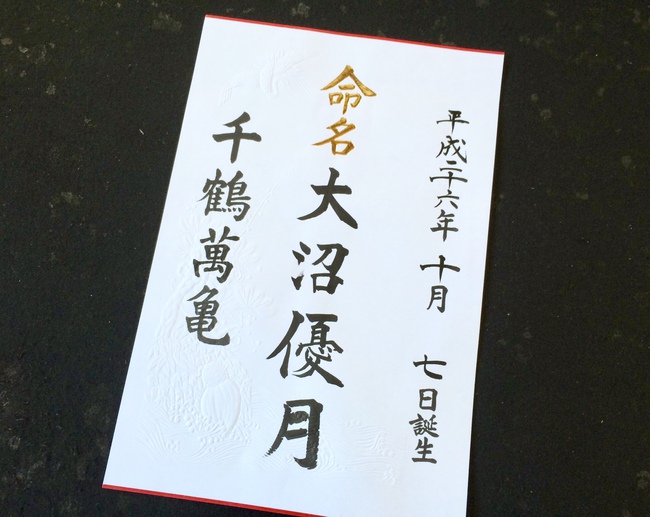 平成二十六年 十月 七日誕生
命名 大沼優月
千鶴萬亀